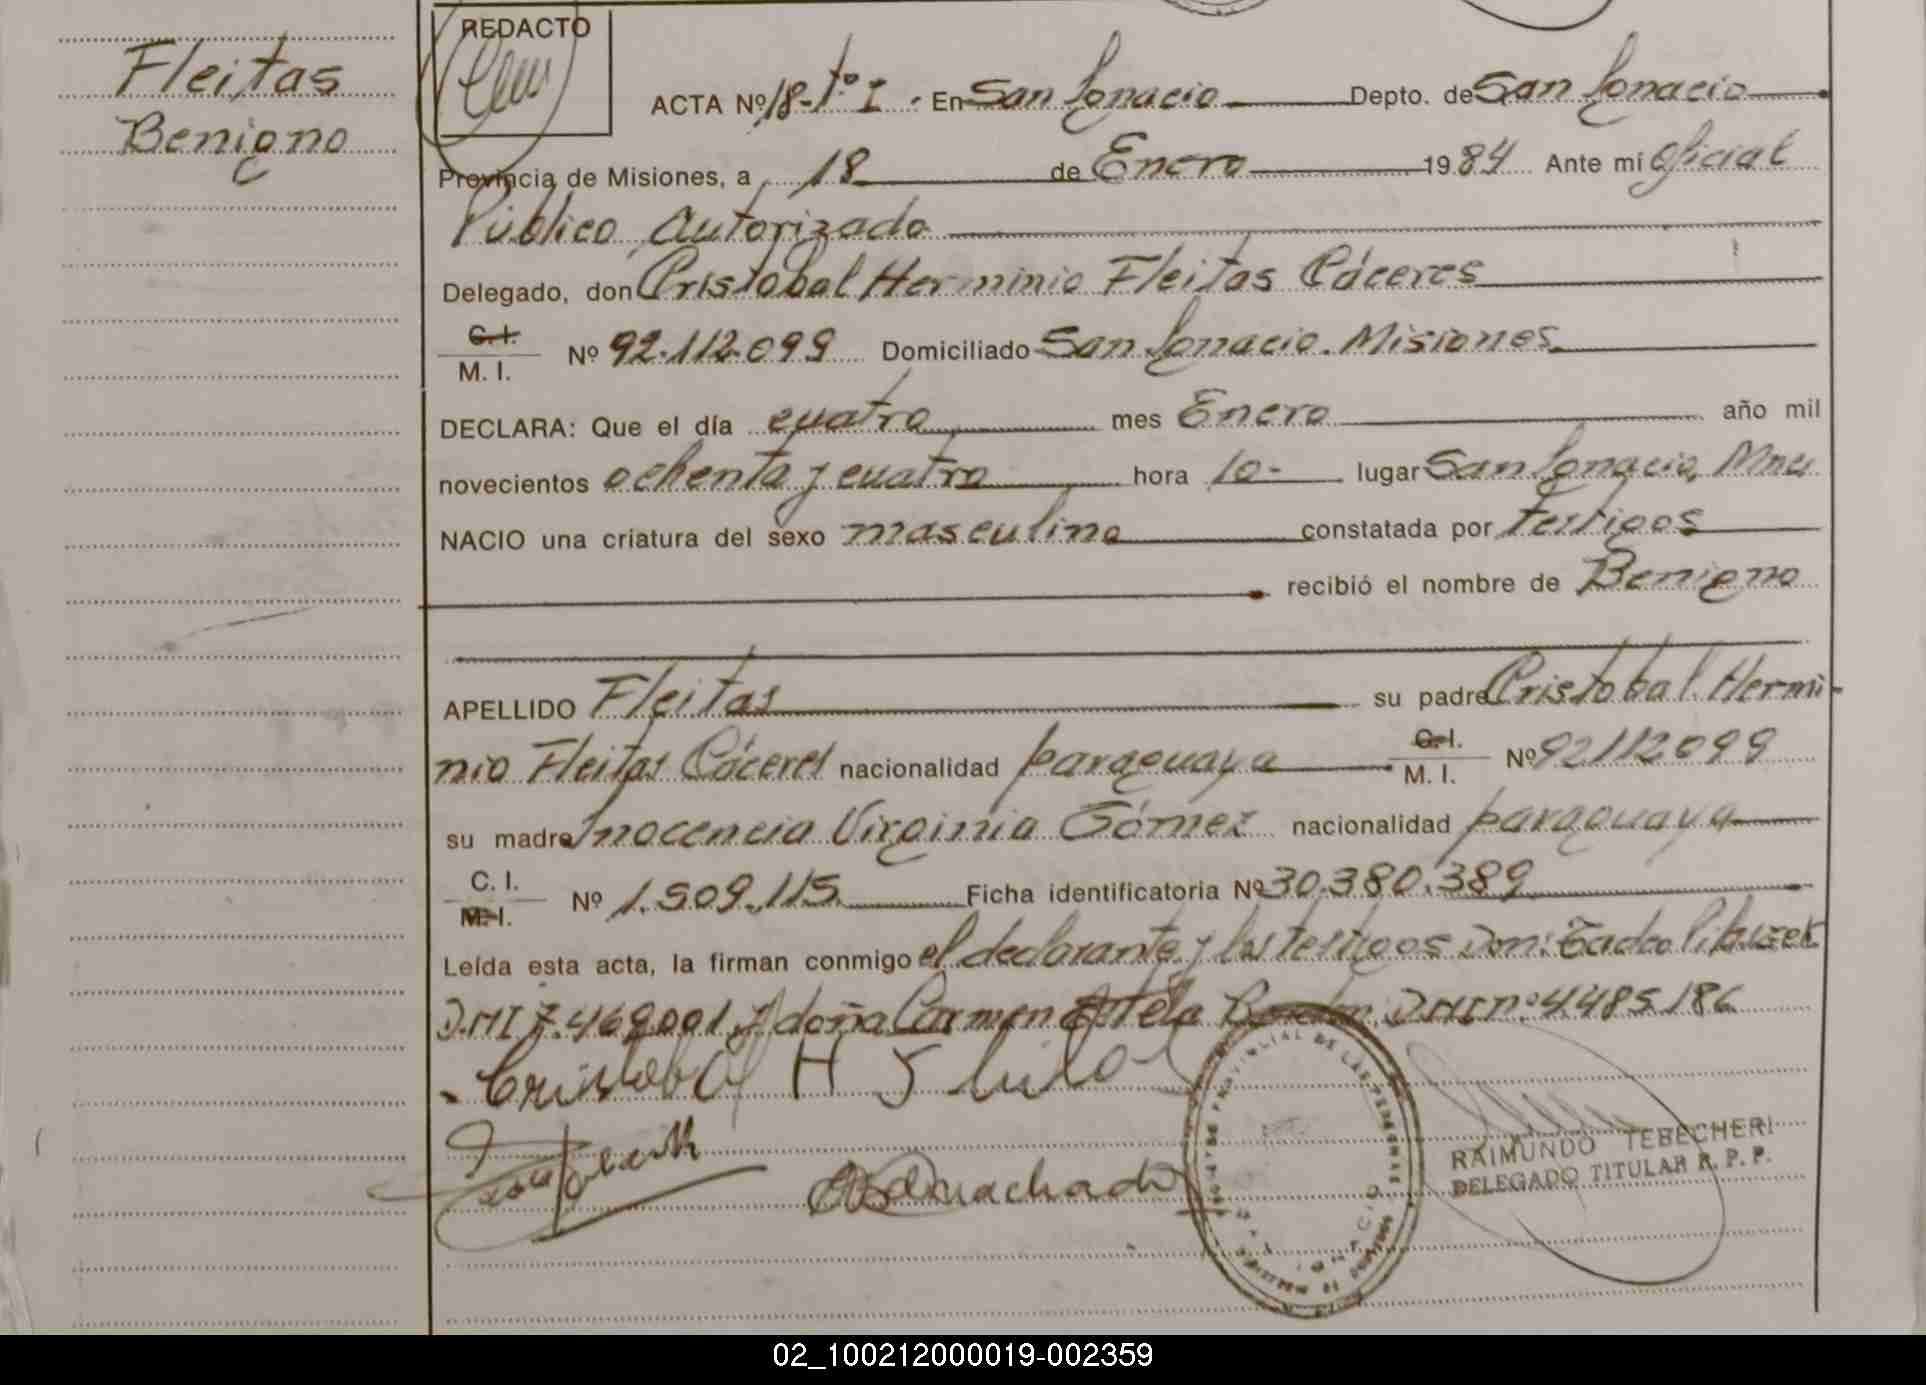 Fleitas
Benigno
REDACTO
ACTA Nº 18-Tº I . En San Ignacio Depto. de San Ignacio
Provincia de Misiones, a 18 de Enero 1984 Ante mi Oficial
Público Autorizado
Delegado, don Cristobal Herminio Fleitas Cáceres
C.I.
M. I. Nº 92.112.099 Domiciliado San Ignacio. Misiones
DECLARA: Que el día cuatro mes Enero año mil
novecientos ochenta y cuatro hora 10- lugar San Ignacio, Mnes
NACIO una criatura del sexo masculino constatada por testigos
recibió el nombre de Benigno
APELLIDO Fleitas su padre Cristobal Hermi-
nio Fleitas Cáceres nacionalidad paraguaya C.I. M. I. Nº 92112099
su madre Inocencia Virginia Gómez nacionalidad paraguaya
C. I.
M. I. Nº 1.509.115 Ficha identificatoria Nº 30.380.389
Leída esta acta, la firman conmigo el declarante y los testigos Don: Tadeo
D.M.I 7.469.001 y doña Carmen Estela DMI nº 4.485.186
Cristobal H
Machado
PROVINCIAL DE LAS PERSONAS
RAIMUNDO TEBECHERI
DELEGADO TITULAR R. P. P.
02_100212000019-002359